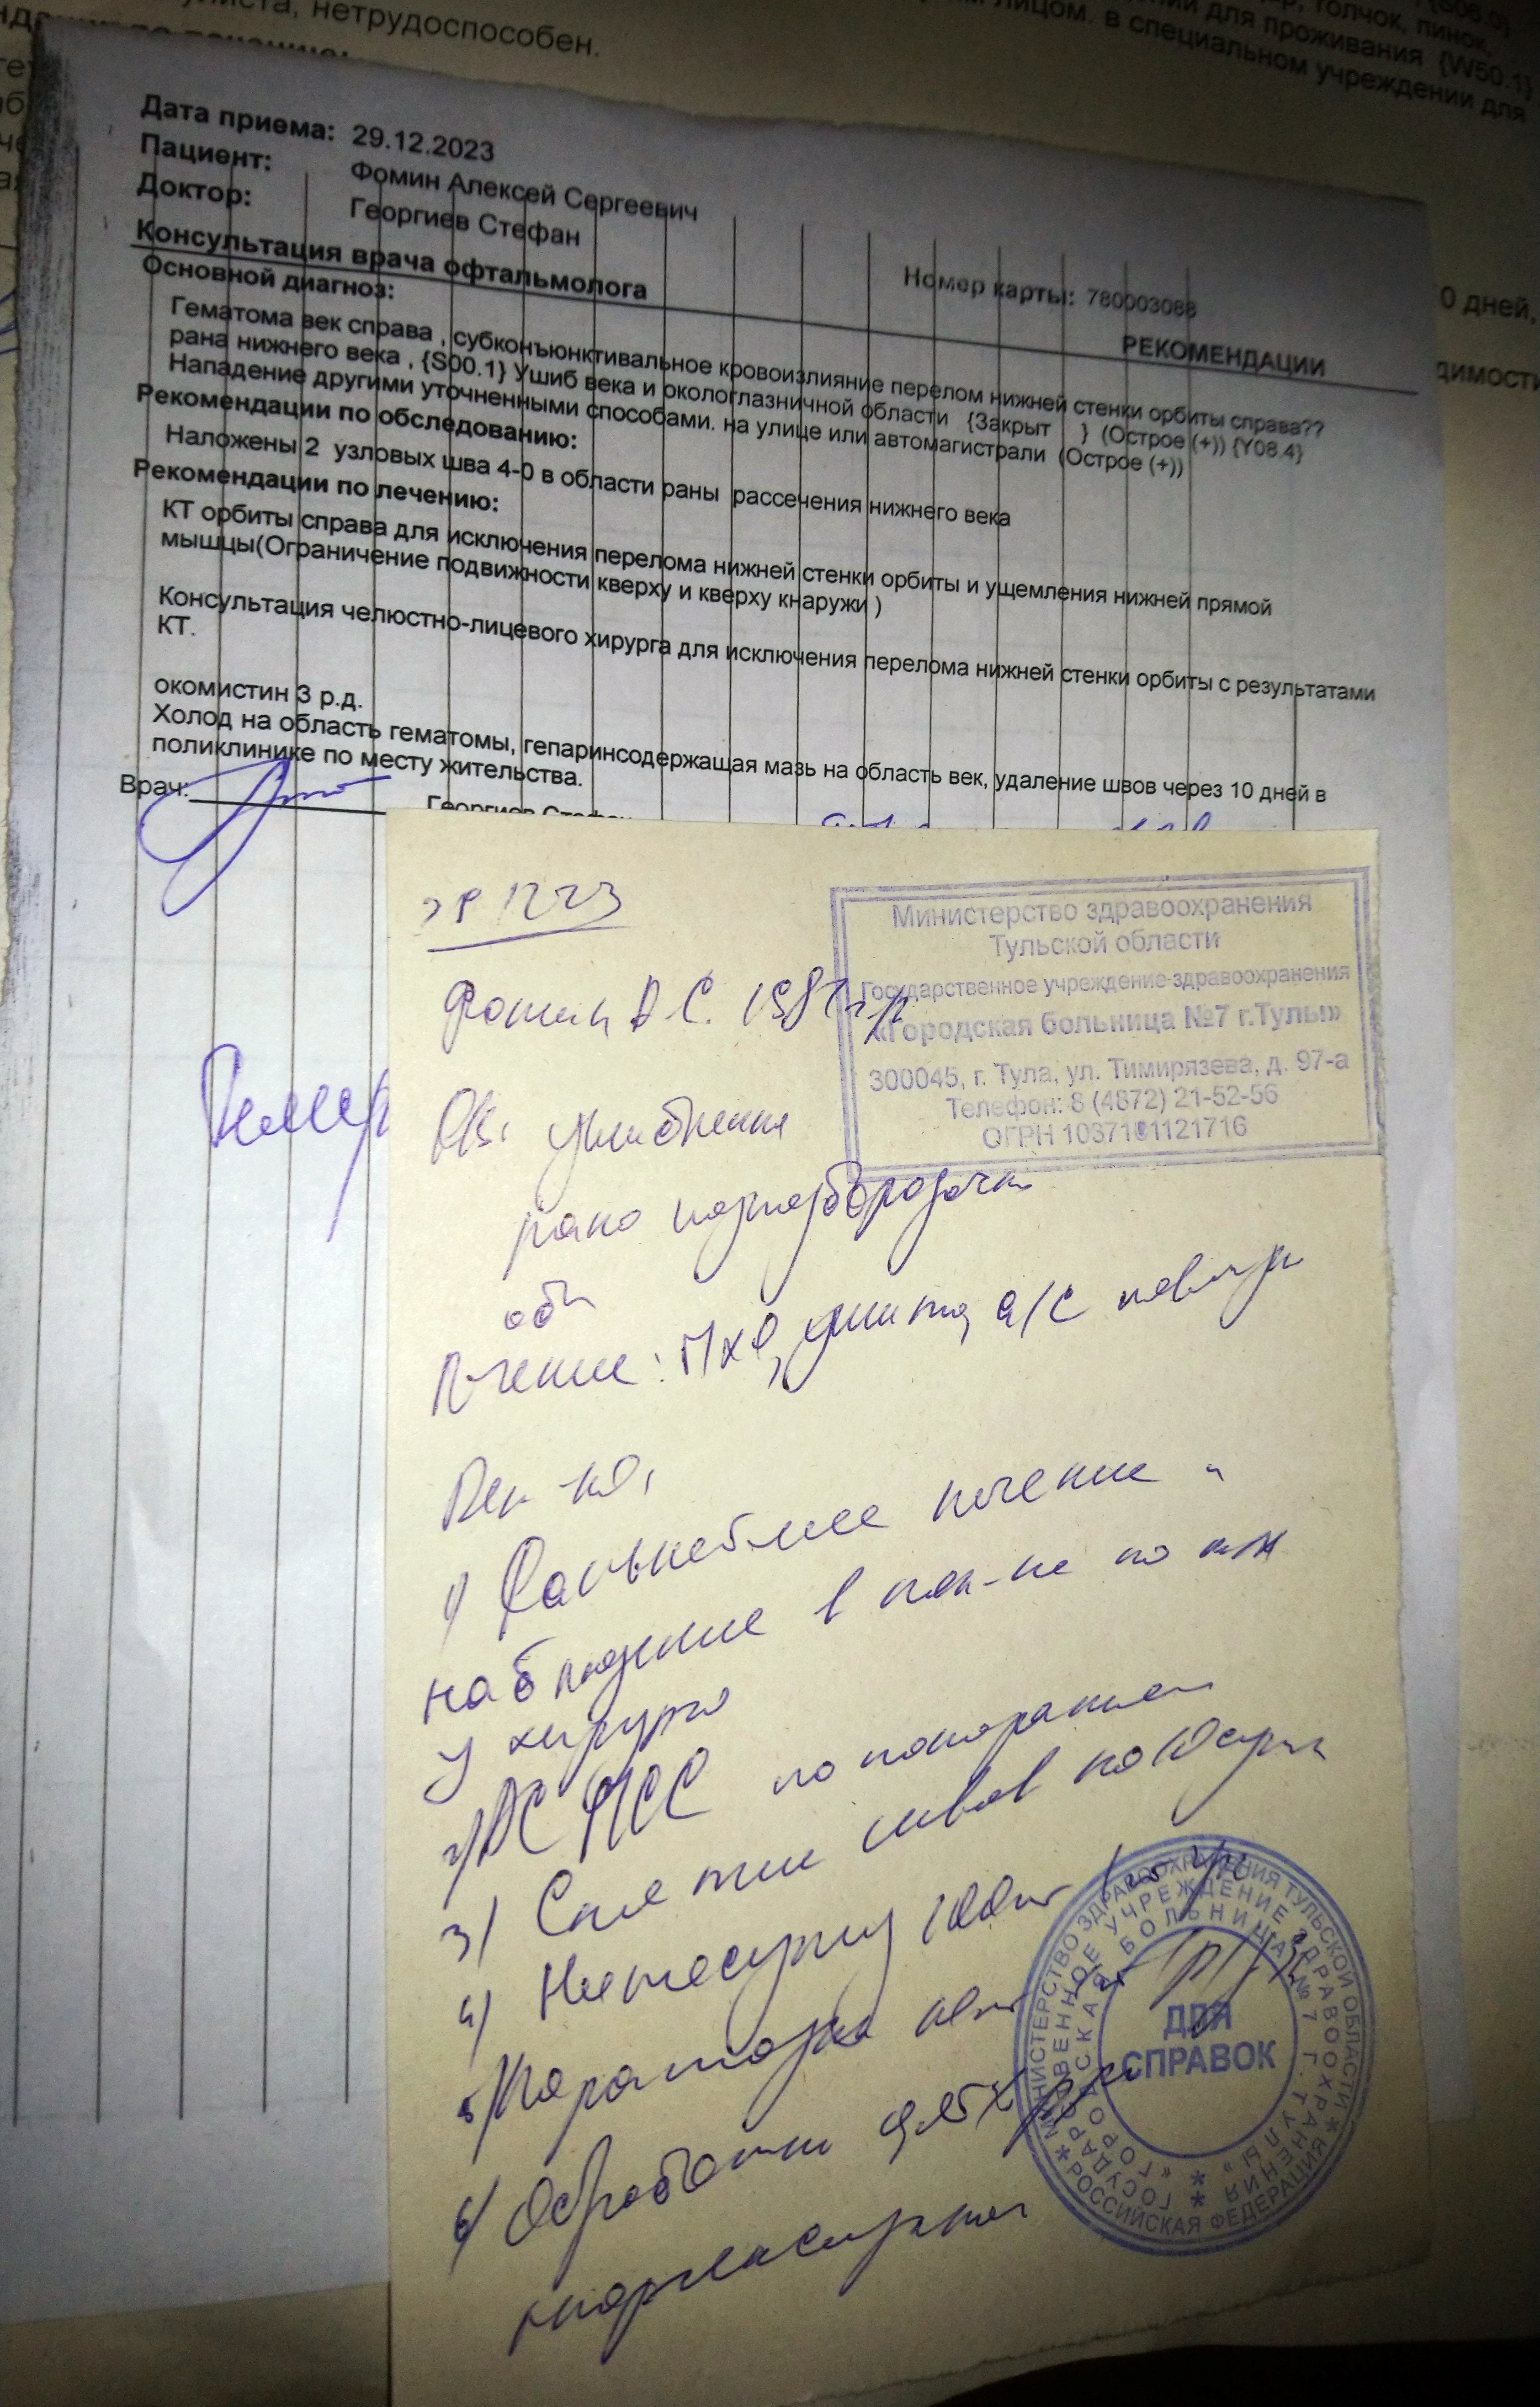 улиста, нетрудоспособен.
толчок, пинок,
для проживания {W50.1}
лицом. в специальном учреждении для
Дата приема: 29.12.2023
Пациент: Фомин Алексей Сергеевич
Доктор: Георгиев Стефан
Номер карты: 780003088
Консультация врача офтальмолога
РЕКОМЕНДАЦИИ
Основной диагноз:
Гематома век справа , субконъюнктивальное кровоизлияние перелом нижней стенки орбиты справа??
рана нижнего века , {S00.1} Ушиб века и окологлазничной области {Закрыт } (Острое (+)) {Y08.4}
Нападение другими уточненными способами. на улице или автомагистрали (Острое (+))
Рекомендации по обследованию:
Наложены 2 узловых шва 4-0 в области раны рассечения нижнего века
Рекомендации по лечению:
КТ орбиты справа для исключения перелома нижней стенки орбиты и ущемления нижней прямой
мышцы(Ограничение подвижности кверху и кверху кнаружи )
Консультация челюстно-лицевого хирурга для исключения перелома нижней стенки орбиты с результатами
КТ.
окомистин 3 р.д.
Холод на область гематомы, гепаринсодержащая мазь на область век, удаление швов через 10 дней в
поликлинике по месту жительства.
Врач: Георгиев Стефан
0 дней,
Министерство здравоохранения
Тульской области
Государственное учреждение здравоохранения
«Городская больница №7 г.Тулы»
300045, г. Тула, ул. Тимирязева, д. 97-а
Телефон: 8 (4872) 21-52-56
ОГРН 1037101121716
Фомин А.С.
Ds: ушибленная
рана подподбородочн
обл
Лечение: ПХО, ушита, а/с повязка
Рек-но:
1) Дальнейшее лечение и
наблюдение в пол-ке по м/ж
у хирурга
2) АС ПСС по показаниям
3) Снятие швов на 10 сутки
4) Нимесулид 100мг
6) Обработка
хлоргексидином
МИНИСТЕРСТВО ЗДРАВООХРАНЕНИЯ ТУЛЬСКОЙ ОБЛАСТИ * РОССИЙСКАЯ ФЕДЕРАЦИЯ *
ГОСУДАРСТВЕННОЕ УЧРЕЖДЕНИЕ ЗДРАВООХРАНЕНИЯ *
«ГОРОДСКАЯ БОЛЬНИЦА № 7 Г. ТУЛЫ» *
ДЛЯ
СПРАВОК